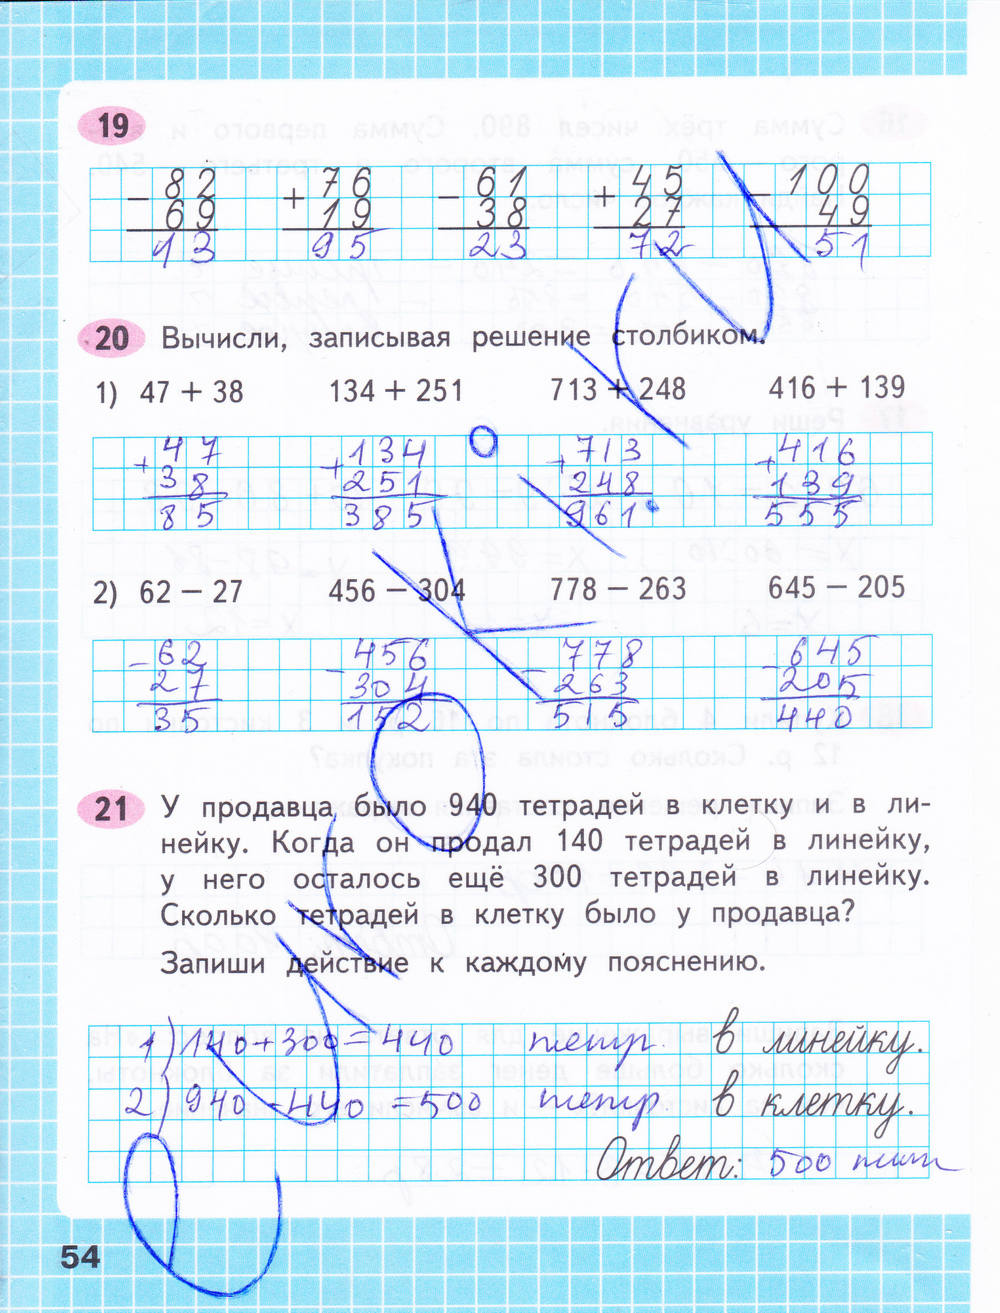 19
− 82 + 76 − 61 + 45 − 100
69 19 38 27 49
13 95 23 72 51
20 Вычисли, записывая решение столбиком.
1) 47 + 38 134 + 251 713 + 248 416 + 139
+ 47 + 134 + 713 + 416
38 251 248 139
85 385 961 555
2) 62 − 27 456 − 304 778 − 263 645 − 205
− 62 − 456 − 778 − 645
27 304 263 205
35 152 515 440
21 У продавца было 940 тетрадей в клетку и в ли-
нейку. Когда он продал 140 тетрадей в линейку,
у него осталось ещё 300 тетрадей в линейку.
Сколько тетрадей в клетку было у продавца?
Запиши действие к каждому пояснению.
1) 140+300=440 тетр. в линейку.
2) 940-440=500 тетр. в клетку.
Ответ: 500
54